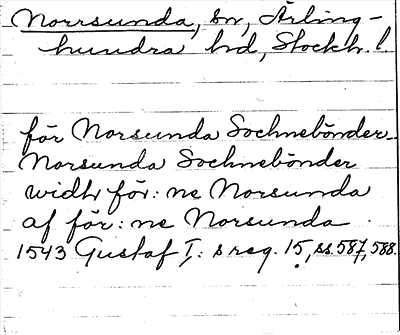 Norrsunda, sn, Ärling-
hundra hd, Stockh. l.
för Norsunda Sochnebönder
Norsunda Sochnebönder
widh för: ne Norsunda
af för: ne Norsunda
1543 Gustaf I: s reg. 15, ss. 587, 588.